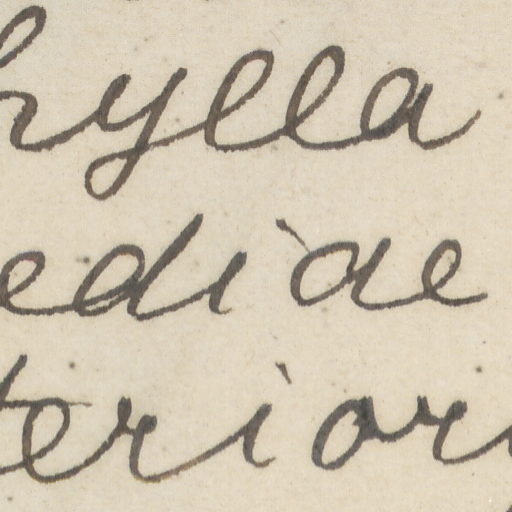 hylla
ediae
terior